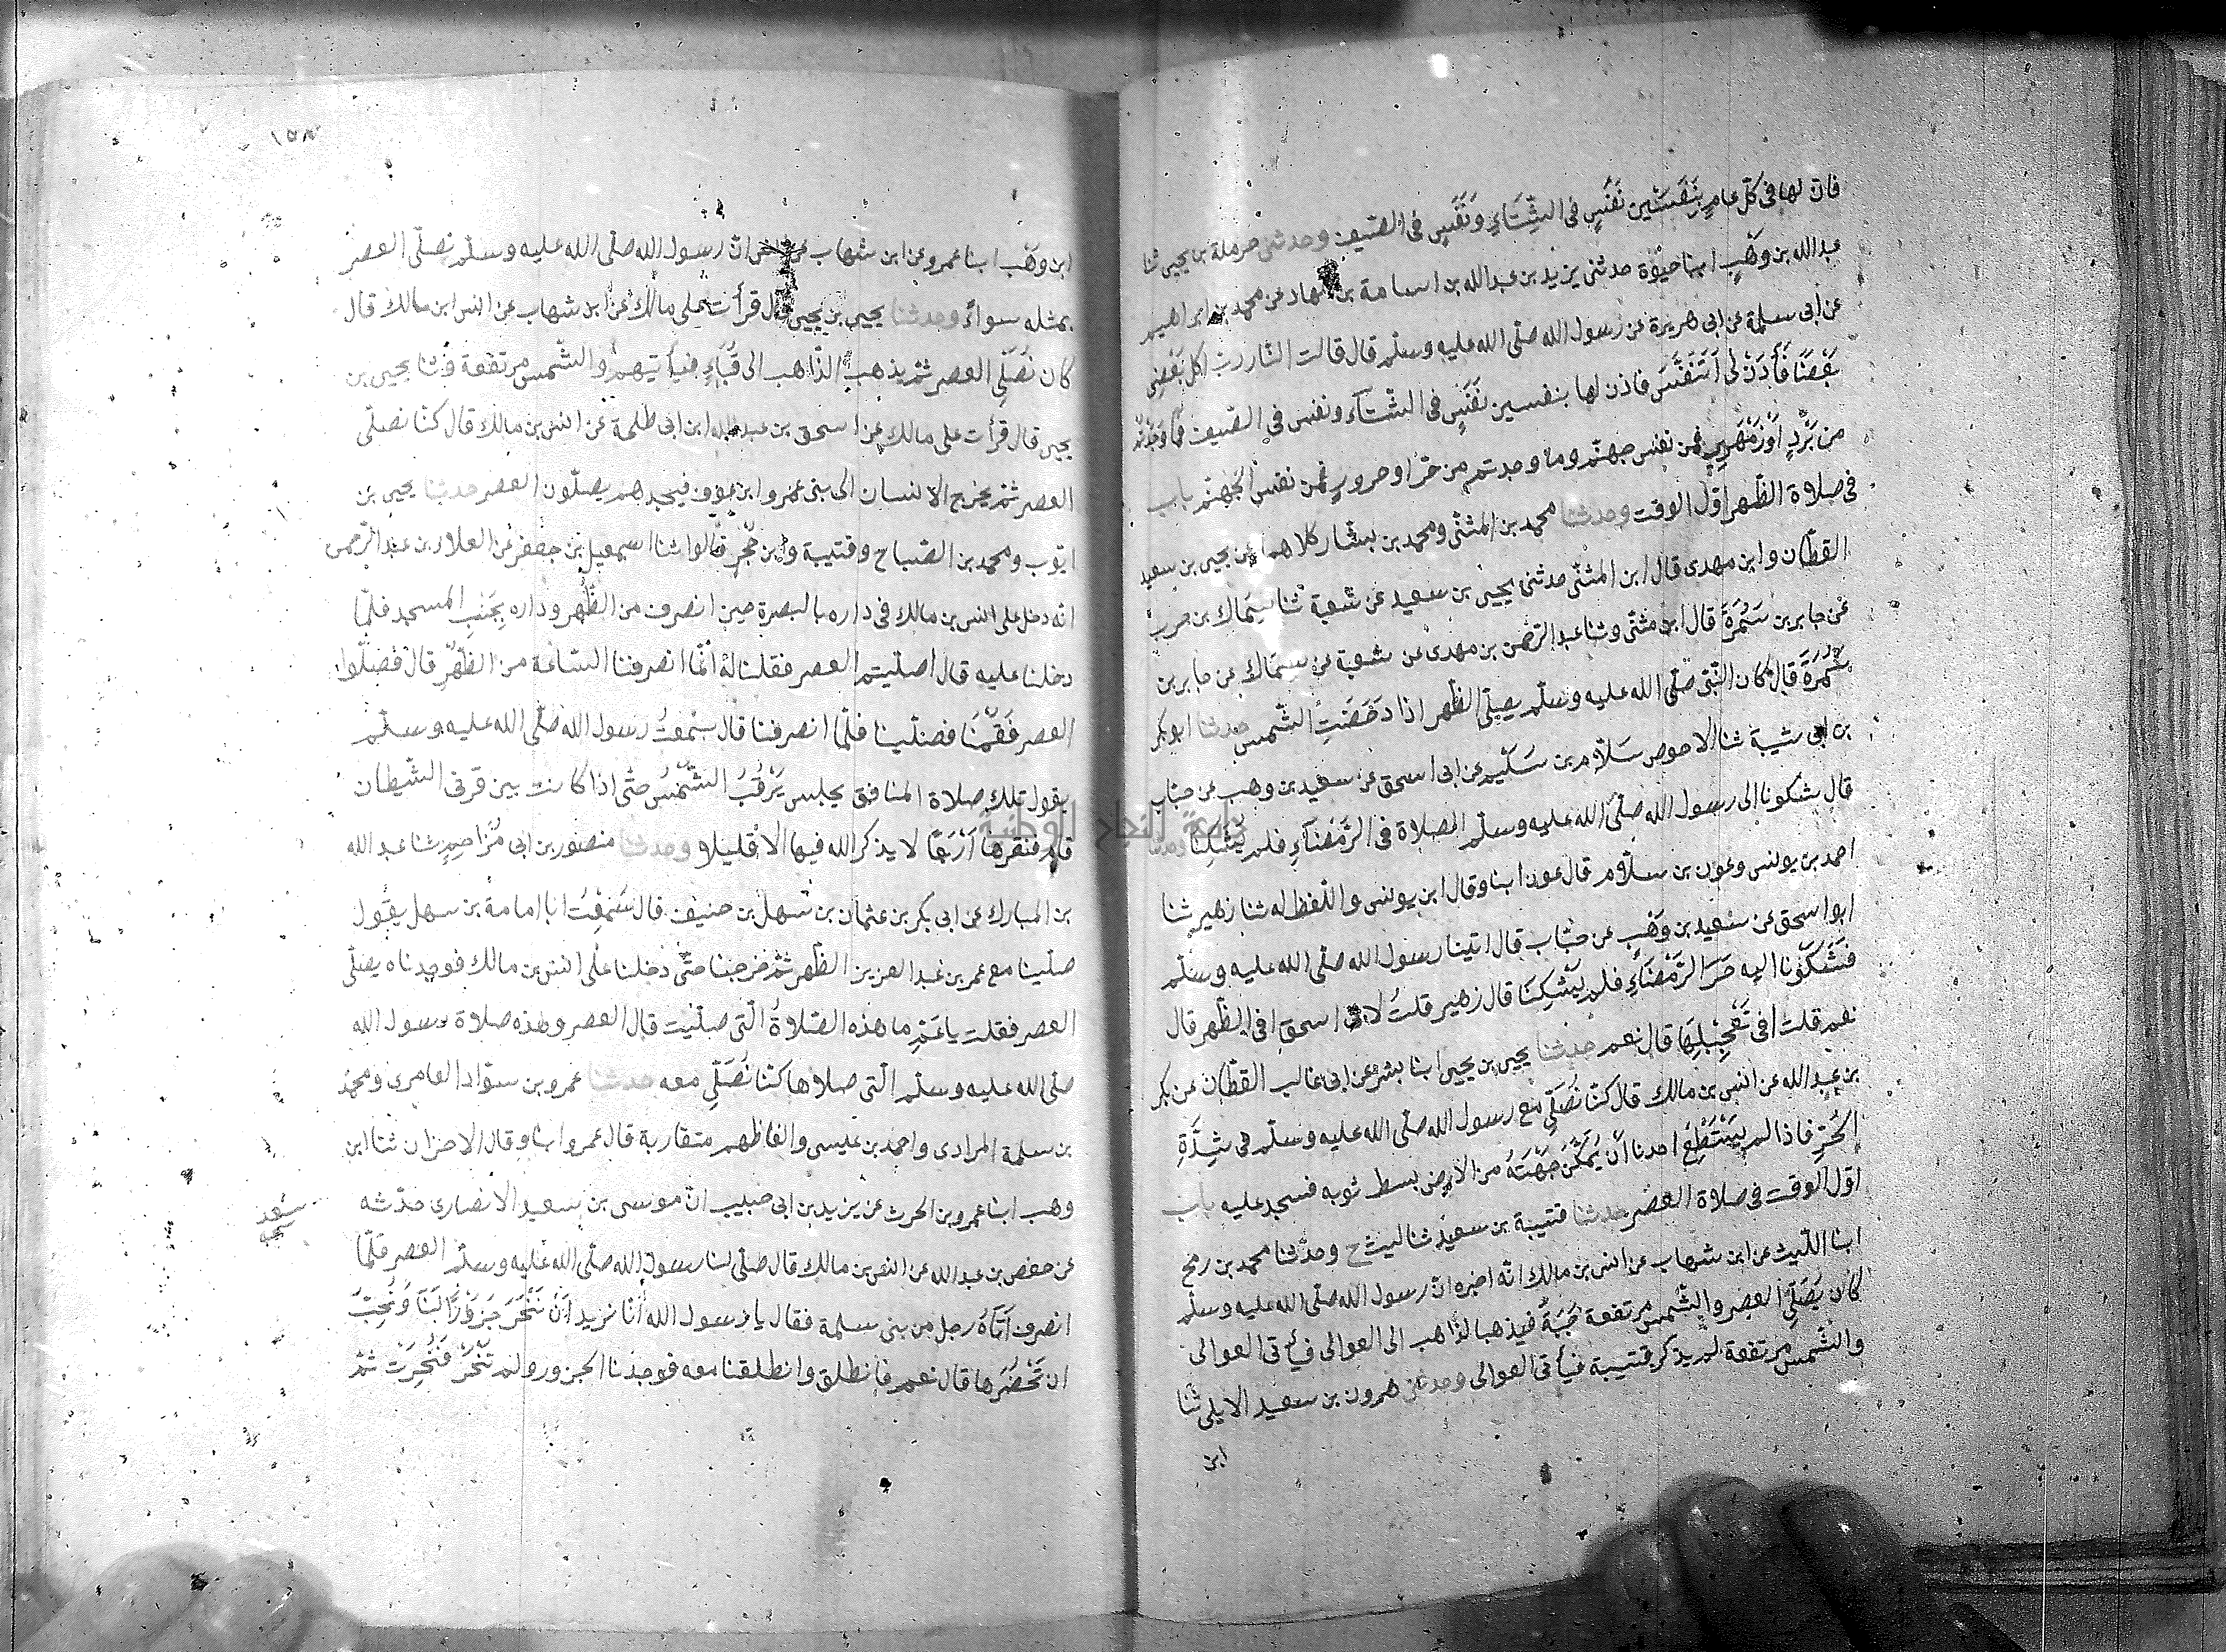 فان لها فى كل عام بِنَفَسَيْن نَفَسٍ فى الشِّتَاءِ ونَفَسٍ فى الصّيف وحدثنى حرملة بن يحيى ثنا
عبد الله بن وَهْبٍ ابنا حيوة حدثنى يزيد بن عبد الله بن اسامة بن الهاد عن محمد بن ابراهيم
عن ابى سلمة عن ابى هريرة عن رسول الله صلّى الله عليه وسلّم قال قالت النّار ربّ اكل بَعْضِى
بَعْضًا فَأْذَنْ لى اَتَنَفَّسَ فاذن لها بنفسين نَفَسٍ فى الشّتآء ونفس فى الصّيف فما وَجَدْتُمْ
من بَرْدٍ اَوْ زَمْهَرِيرٍ فمن نفس جهنّم وما وجدتم من حرّ او حرورٍ فمن نفس جهنّم باب
فى صلاة الظّهر اوّل الوقت وحدثنا محمد بن المثنّى ومحمد بن بشار كلاهما عن يحيى بن سعيد
القطّان وابن مهدى قال ابن المثنّى حدثنى يحيى بن سعيد عن شعبة ثنا سِمَاك بن حرب
عن جابر بن سَمُرَةَ قال ابن مثنّى وثنا عبد الرّحمن بن مهدى عن شعبة عن سِمَاك عن جابر بن
سَمُرَةَ قال كان النّبىّ صلّى الله عليه وسلّم يصلّى الظّهر اذا دَحَضَتِ الشّمس حدثنا ابو بكر
بن ابى شيبة ثنا الاحوص سَلّام بن سَلَيْم عن ابى اسحق عن سعيد بن وهب عن خبّاب
قال شكونا الى رسول الله صلّى الله عليه وسلّم الصلاة فى الرَّمْضَآءِ فلم يُشْكِنَا وحدثنا
احمد بن يونس وعون بن سلّام قال عون ابنا وقال ابن يونس واللّفظ له ثنا زهير ثنا
ابو اسحق عن سعيد بن وَهْبٍ عن خبّاب قال اتينا رسول الله صلّى الله عليه وسلّم
فَشَكَوْنا اليه حَرَّ الرَّمْضَآءِ فلم يُشْكِنَا قال زهير قلتُ لابى اسحق افى الظّهر قال
نعم قلت افى تَعْجِيلِهَا قال نعم حدثنا يحيى بن يحيى ابنا بشر عن ابى غالب القطّان عن بكر
بن عبد الله عن انس بن مالك قال كنّا نُصَلِّى مع رسول الله صلّى الله عليه وسلّم فى شِدَّةِ
الحَرِّ فاذا لم يَسْتَطِعْ احدنا اَن يُمَكِّنَ جَبْهَتَهُ من الارض بسط ثوبه فسجد عليه باب
اوّل الوقت فى صلاة العصر حدثنا قتيبة بن سعيد ثنا ليث ح وحدّثنا محمد بن رمح
ابنا اللّيث عن ابن شهاب عن انس بن مالك انّه اخبره انّ رسول الله صلّى الله عليه وسلّم
كان يُصَلِّى العصر والشّمس مرتفعة حَيَّةٌ فيذهب الذّاهب الى العوالى فيأتى العوالى
والشّمس مرتفعة لم يذكر قتيبة فيأتى العوالى وحدثنى هرون بن سعيد الايلى ثنا
ابن
١٥٨
ابن وَهْب ابنا عمرو عن ابن شهاب عن انس انّ رسول الله صلّى الله عليه وسلّم يصلّى العصر
بمثله سواءً وحدثنا يحيى بن يحيى قال قرأت على مالك عن ابن شهاب عن انس ابن مالك قال
كان نُصَلِّى العصر ثمّ يذهب الذّاهب الى قُبَاءٍ فيأتيهم والشّمس مرتفعة وثنا يحيى بن
يحيى قال قرأت على مالك عن اسحق بن عبد الله ابن ابى طلحة عن انس بن مالك قال كنّا نصلّى
العصر ثمّ يخرج الانسان الى بنى عمرو ابن عوف فيجدهم يصلّون العصر حدثنا يحيى بن
ايّوب ومحمد بن الصّباح وقتيبة وابن حُجْرٍ قالوا ثنا اسمعيل بن جعفر عن العلاء بن عبد الرّحمن
انّه دخل على انس بن مالك فى داره بالبصرة حين انصرف من الظّهر وداره بِجَنْبِ المسجد فلمّا
دخلنا عليه قال أصلّيتم العصر فقلنا له انّما انصرفنا السّاعة من الظّهر قال فصلّوا
العصر فَقُمْنَا فصلّينا فلمّا انصرفنا قال سمعتُ رسول الله صلّى الله عليه وسلّم
يقول تلك صلاة المنافق يجلس يَرْقُبُ الشّمسَ حتّى اذا كانت بين قرنى الشّيطان
قام فنقرها اَرْبَعًا لا يذكر الله فيها الّا قليلا وحدثنا منصور بن ابى مُزَاحِمٍ ثنا عبد الله
بن المبارك عن ابى بكر بن عثمان بن سهل بن حنيف قال سَمِعْتُ ابا امامة بن سهل يقول
صلّينا مع عمر بن عبد العزيز الظّهر ثمّ خرجنا حتّى دخلنا على انس بن مالك فوجدناه يصلّى
العصر فقلت يا عَمِّ ما هذه الصّلاةُ الّتى صلّيت قال العصر وهذه صلاة رسول الله
صلّى الله عليه وسلّم الّتى صلّاها كنّا نُصَلِّى معه حدثنا عمرو بن سوّاد العامرى ومحمد
بن سلمة المرادى واحمد بن عيسى والفاظهم متقاربة قال عمرو ابنا وقال الاخران ثنا ابن
وهب ابنا عمرو بن الحرث عن يزيد بن ابى حبيب انّ موسى بن سعيد الانصارى حدّثه
سَعْد
عن حفص بن عبد الله عن انس بن مالك قال صلّى لنا رسول الله صلّى الله عليه وسلّم العصر فلمّا
انصرف اَتَاهُ رجل من بنى سلمة فقال يا رسول الله أنا نريد اَنْ نَنْحَرَ جَزُورًا لَنَا ونُحِبّ
ان تَحْضُرَها قال نعم فانطلق وانطلقنا معه فوجدنا الجزور ولم تُنْحَرْ فَنُحِرَتْ ثمّ
جامعة النجاح الوطنية